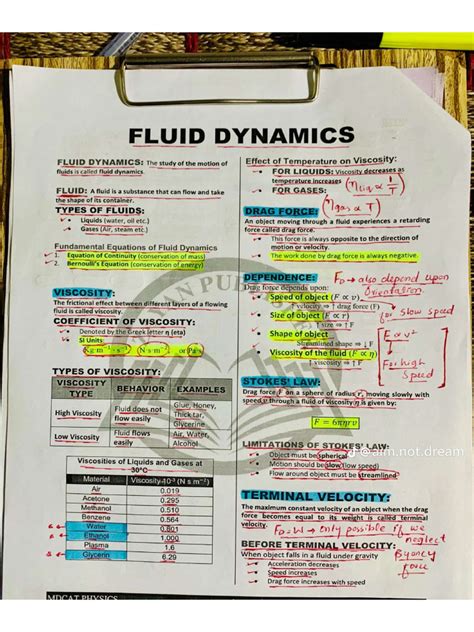 FLUID DYNAMICS
FLUID DYNAMICS: The study of the motion of
fluids is called fluid dynamics.
FLUID: A fluid is a substance that can flow and take
the shape of its container.
TYPES OF FLUIDS:
Liquids (water, oil etc.)
Gases (Air, steam etc.)
Fundamental Equations of Fluid Dynamics
1. Equation of Continuity (conservation of mass)
2. Bernoulli's Equation (conservation of energy)
VISCOSITY:
The frictional effect between different layers of a flowing
fluid is called viscosity.
COEFFICIENT OF VISCOSITY:
Denoted by the Greek letter η (eta)
SI Units
Kg m⁻¹ s⁻¹ (N s m⁻²) or Pa s
TYPES OF VISCOSITY:
VISCOSITY TYPE BEHAVIOR EXAMPLES
High Viscosity Fluid does not flow easily Glue, Honey, Thick tar, Glycerine
Low Viscosity Fluid flows easily Air, Water, Alcohol
Viscosities of Liquids and Gases at
30°C
Material Viscosity 10⁻³ (N s m⁻²)
Air 0.019
Acetone 0.295
Methanol 0.510
Benzene 0.564
Water 0.801
Ethanol 1.000
Plasma 1.6
Glycerin 6.29
MDCAT PHYSICS
Effect of Temperature on Viscosity:
FOR LIQUIDS: Viscosity decreases as
temperature increases (ηliq ∝ 1/T)
FOR GASES: (ηgas ∝ T)
DRAG FORCE:
An object moving through a fluid experiences a retarding
force called drag force.
This force is always opposite to the direction of
motion or velocity.
The work done by drag force is always negative.
DEPENDENCE: FD → also depend upon
Orientation.
Drag force depends upon:
Speed of object (F ∝ v) for slow speed
Velocity ⇒ drag force ↑
Size of object (F ∝ r)
size ⇒ ↑ F
Shape of object
Streamlined shape ⇒ ↓ F
Viscosity of the fluid (F ∝ η)
F ∝ v²
For high
speed
STOKES' LAW:
Drag force F on a sphere of radius r, moving slowly with
speed v through a fluid of viscosity η is given by:
F = 6πηrv
LIMITATIONS OF STOKES' LAW:
Object must be spherical
Motion should be slow (low speed)
Flow around object must be streamlined
@aim.not.dream
TERMINAL VELOCITY:
The maximum constant velocity of an object when the drag
force becomes equal to its weight is called terminal
velocity.
FD = W → only possible if we
neglect
Byancy
force
BEFORE TERMINAL VELOCITY:
When object falls in a fluid under gravity
Acceleration decreases
Speed increases
Drag force increases with speed